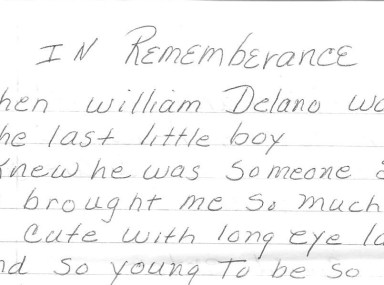 IN Rememberance
hen william Delano wa
he last little boy
Knew he was someone
brought me so much
cute with long eye la
nd so young To be so